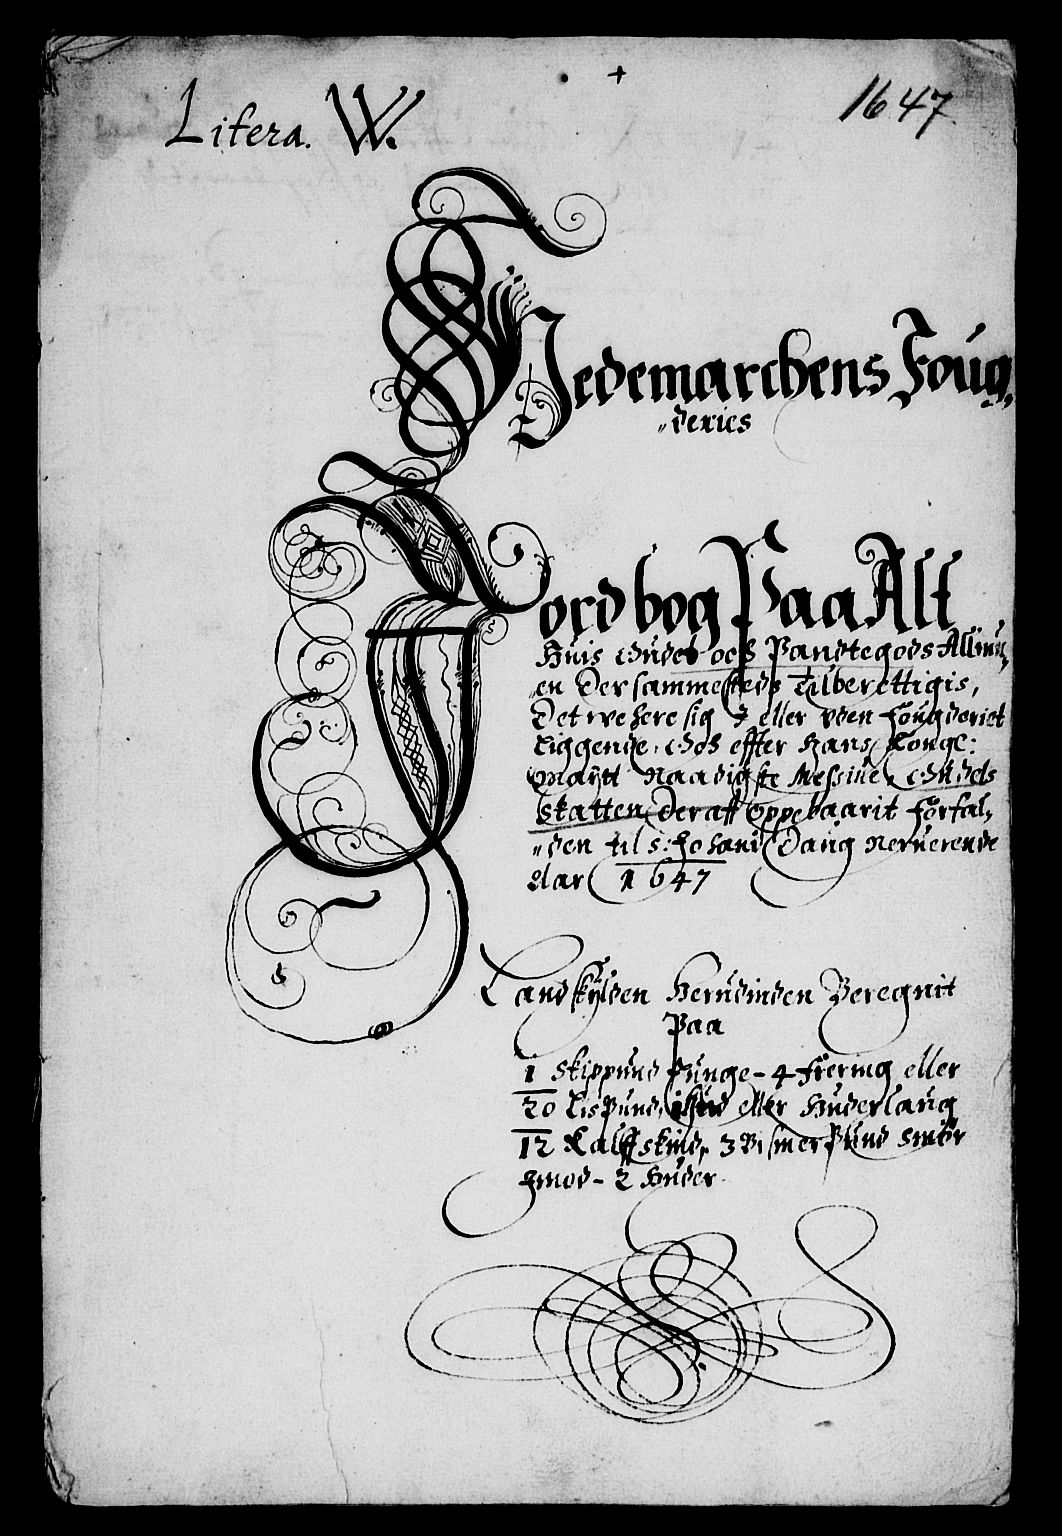 Litera. W.
1647
Hedemarchens Foug,
„deries
Jordbog Paa Alt
Huis Gudtz och Pandtegods Allmu,
„en der sammesteds Tilberettigis,
Det were sig J eller vden fougderiet
Liggende, Som effter Hans Kongl:
Maytt Naadigste
skatten, deraff Oppebaarit forfal„
„den til S: Johani Daug Neruerende
Aar 1647
Landskÿlden Herudinden Beregnit
Paa
1 Skippund Tunge - 4 Fiering eller
20 Lispund, 1 Hud eller Huderlaug
12 Kalffskind, 3 Bismerpund Smör
Jmod - 2 Huder